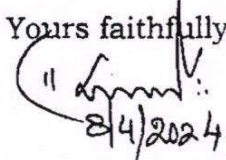 Yours faithfully
8/4/2024